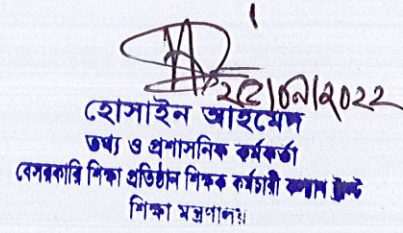 হোসাইন আহমেদ
তথ্য ও প্রশাসনিক কর্মকর্তা
বেসরকারি শিক্ষা প্রতিষ্ঠান শিক্ষক কর্মচারী কল্যাণ ট্রাস্ট
শিক্ষা মন্ত্রণালয়